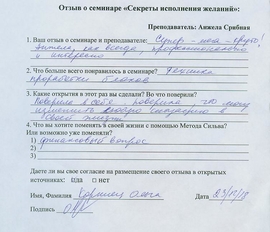 Отзыв о семинаре «Секреты исполнения желаний»:
Преподаватель: Анжела Срибная
1. Ваш отзыв о семинаре и преподавателе: Супер - моя - круто!
как всегда, профессионально
и интересно
2. Что больше всего понравилось в семинаре? Техника
проработки блоков
3. Какие открытия в этот раз вы сделали? Во что поверили?
Поверила в себе, поверила, что могу
изменить любую ситуацию в
своей жизни
4. Что вы хотите поменять в своей жизни с помощью Метода Сильва?
Или возможно уже поменяли?
1) финансовый вопрос
2)
3)
Даете ли вы свое согласие на размещение своего отзыва в открытых
источниках: да нет
Имя, Фамилия Ольга Дата 23/12/18
Подпись